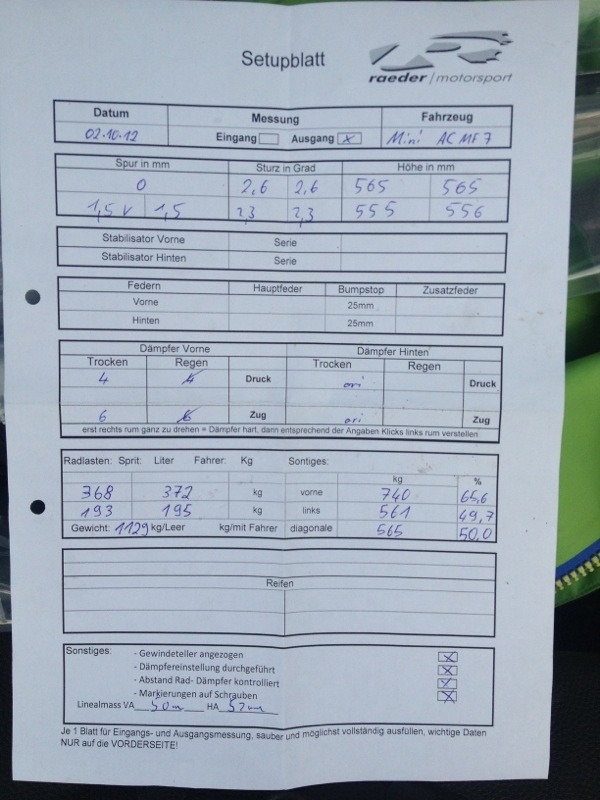 Setupblatt
raeder/motorsport
Datum Messung Fahrzeug
02.10.12 Eingang Ausgang x Mini AC MF7
Spur in mm Sturz in Grad Höhe in mm
0 2,6 2,6 565 565
1,5 v 1,5 2,3 2,3 555 556
Stabilisator Vorne Serie
Stabilisator Hinten Serie
Federn Hauptfeder Bumpstop Zusatzfeder
Vorne 25mm
Hinten 25mm
Dämpfer Vorne Dämpfer Hinten
Trocken Regen Trocken Regen
4 4 Druck ori Druck
6 6 Zug ori Zug
erst rechts rum ganz zu drehen = Dämpfer hart, dann entsprechend der Angaben Klicks links rum verstellen
Radlasten: Sprit: Liter Fahrer: Kg Sontiges: kg %
368 372 kg vorne 740 65,6
193 195 kg links 561 49,7
Gewicht: 1129 kg/Leer kg/mit Fahrer diagonale 565 50,0
Reifen
Sonstiges: - Gewindeteller angezogen x
- Dämpfereinstellung durchgeführt x
- Abstand Rad- Dämpfer kontrolliert x
- Markierungen auf Schrauben x
Linealmass VA HA
Je 1 Blatt für Eingangs- und Ausgangsmessung, sauber und möglichst vollständig ausfüllen, wichtige Daten
NUR auf die VORDERSEITE!